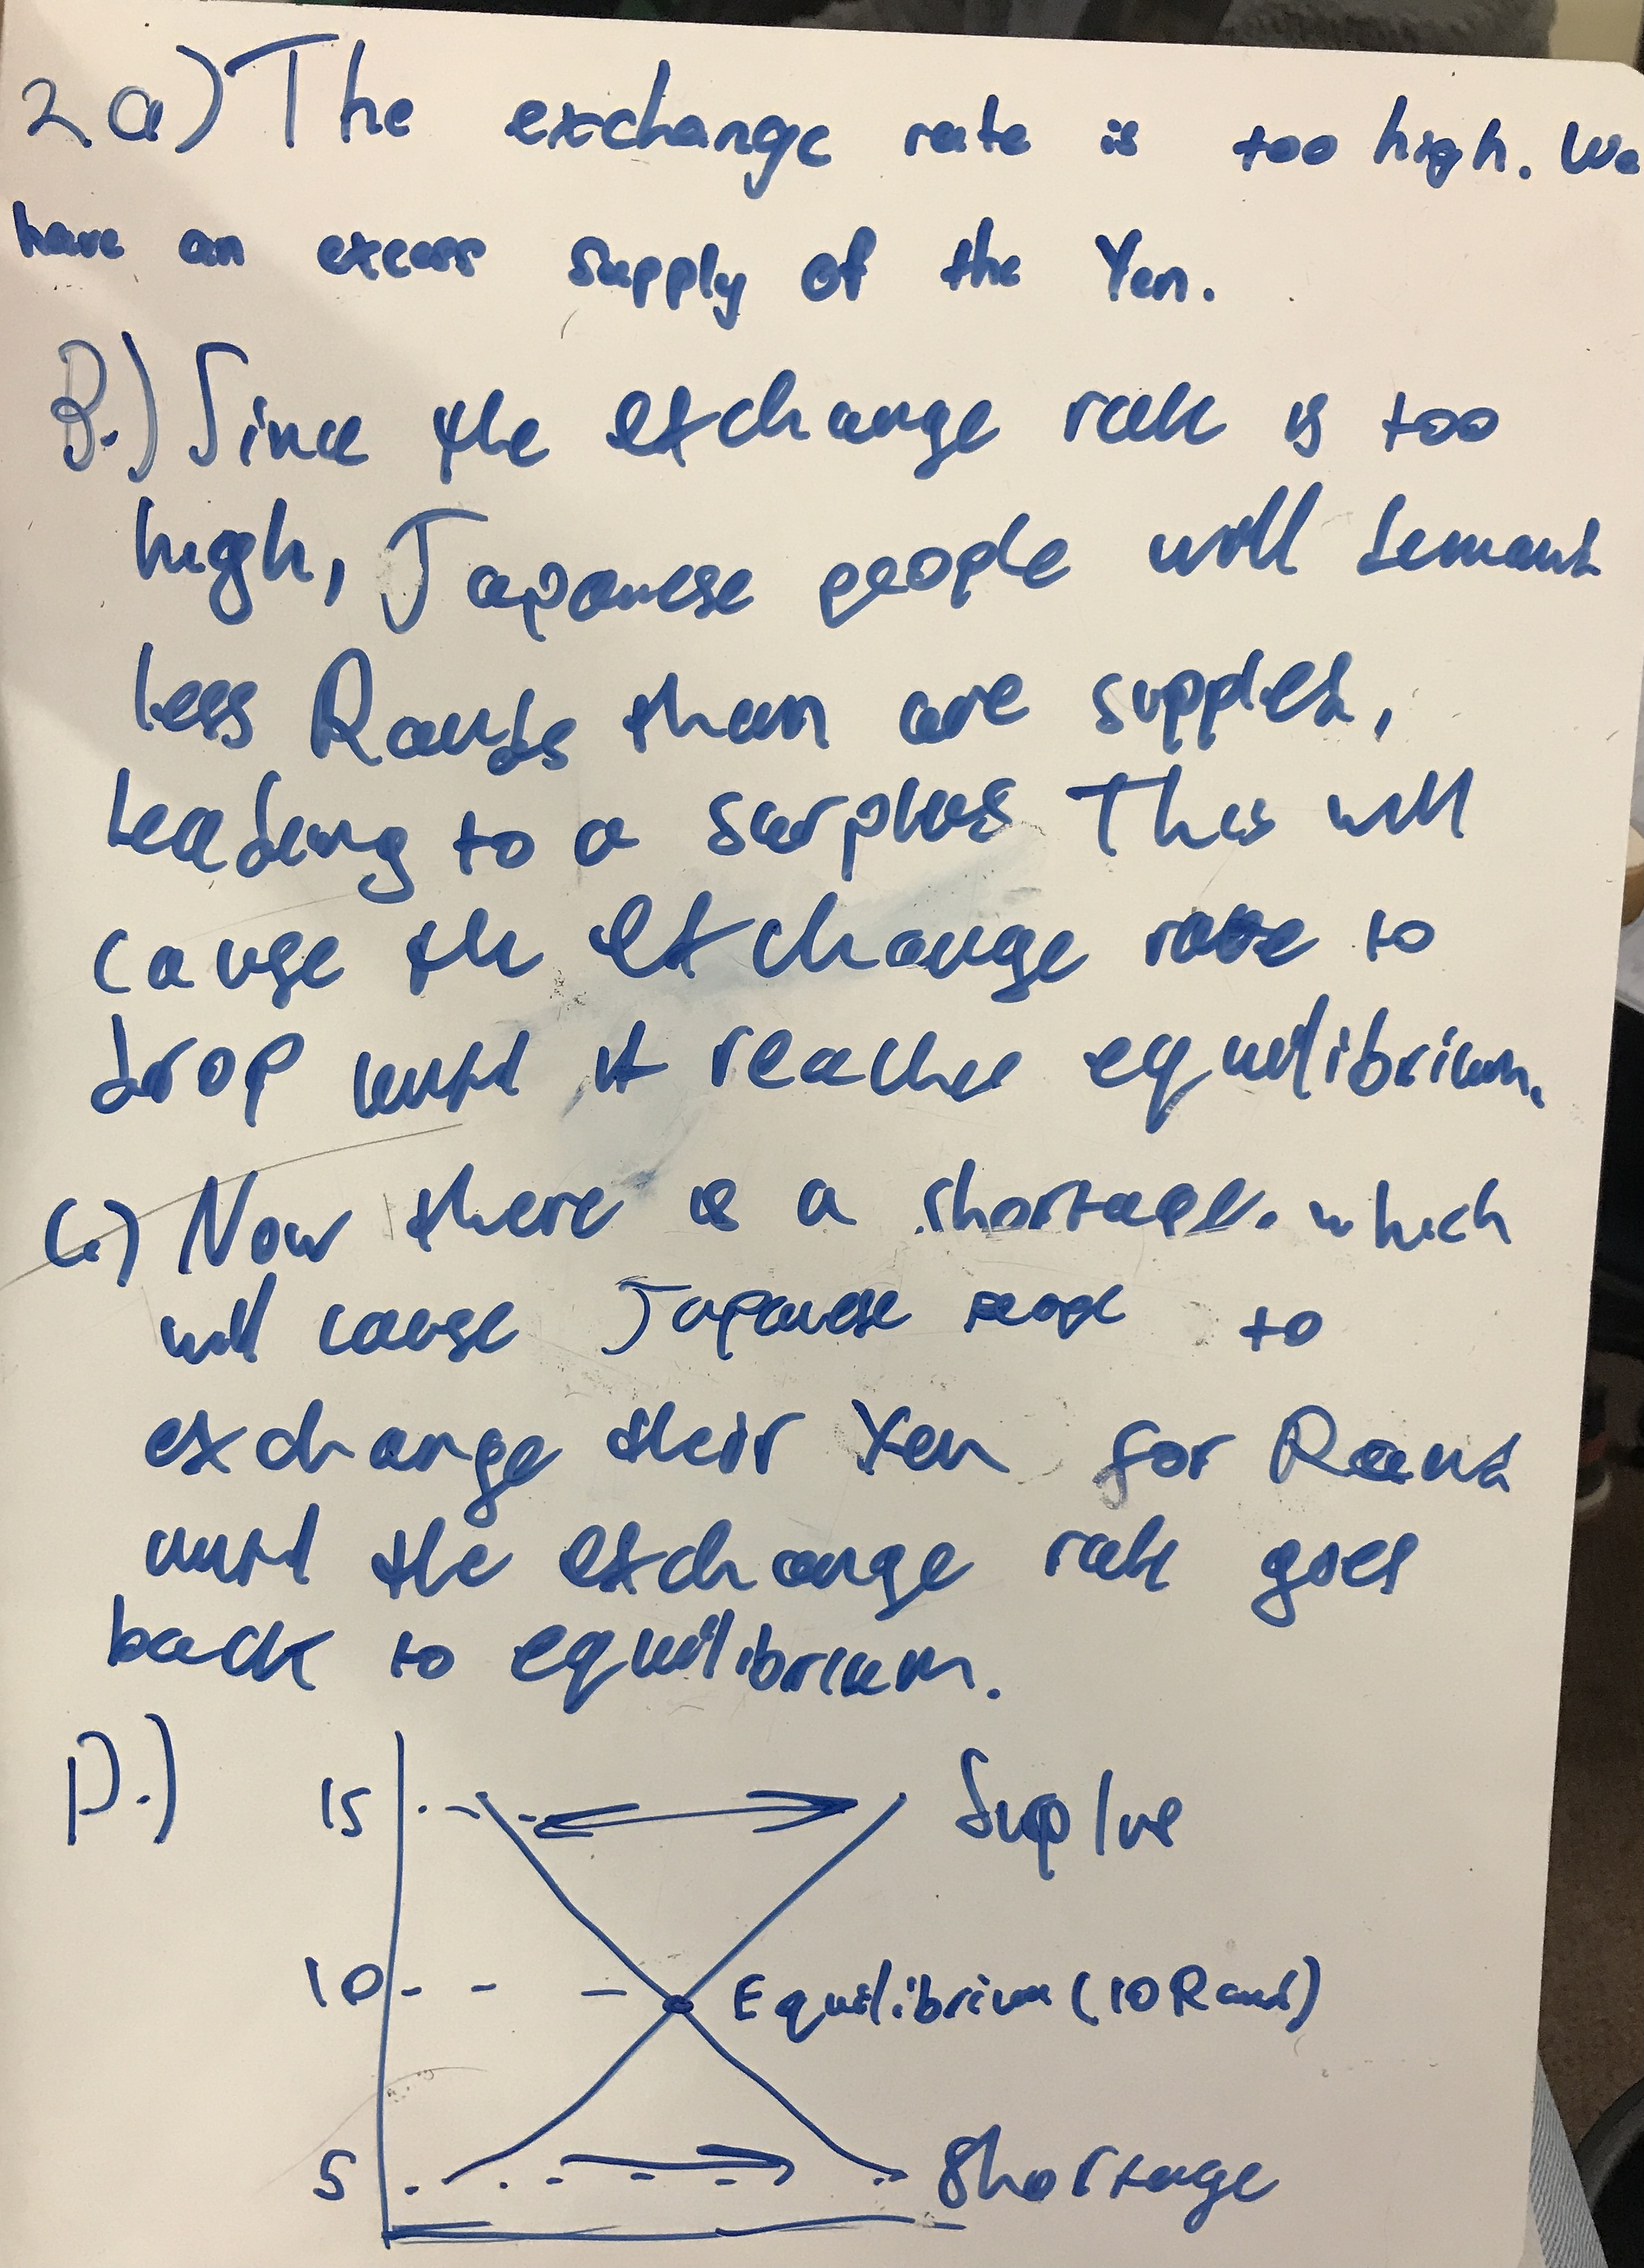 2a) The exchange rate is too high. We
have an excess supply of the Yen.
B.) Since the exchange rate is too
high, Japanese people will demand
less Rands than are supplied,
leading to a surplus This will
cause the exchange rate to
drop until it reaches equilibrium.
C.) Now there is a shortage. which
will cause Japanese people to
exchange their Yen for Rand
until the exchange rate goes
back to equilibrium.
D.)
15 Suplus
10 Equilibrium (10 Rand)
5 Shortage